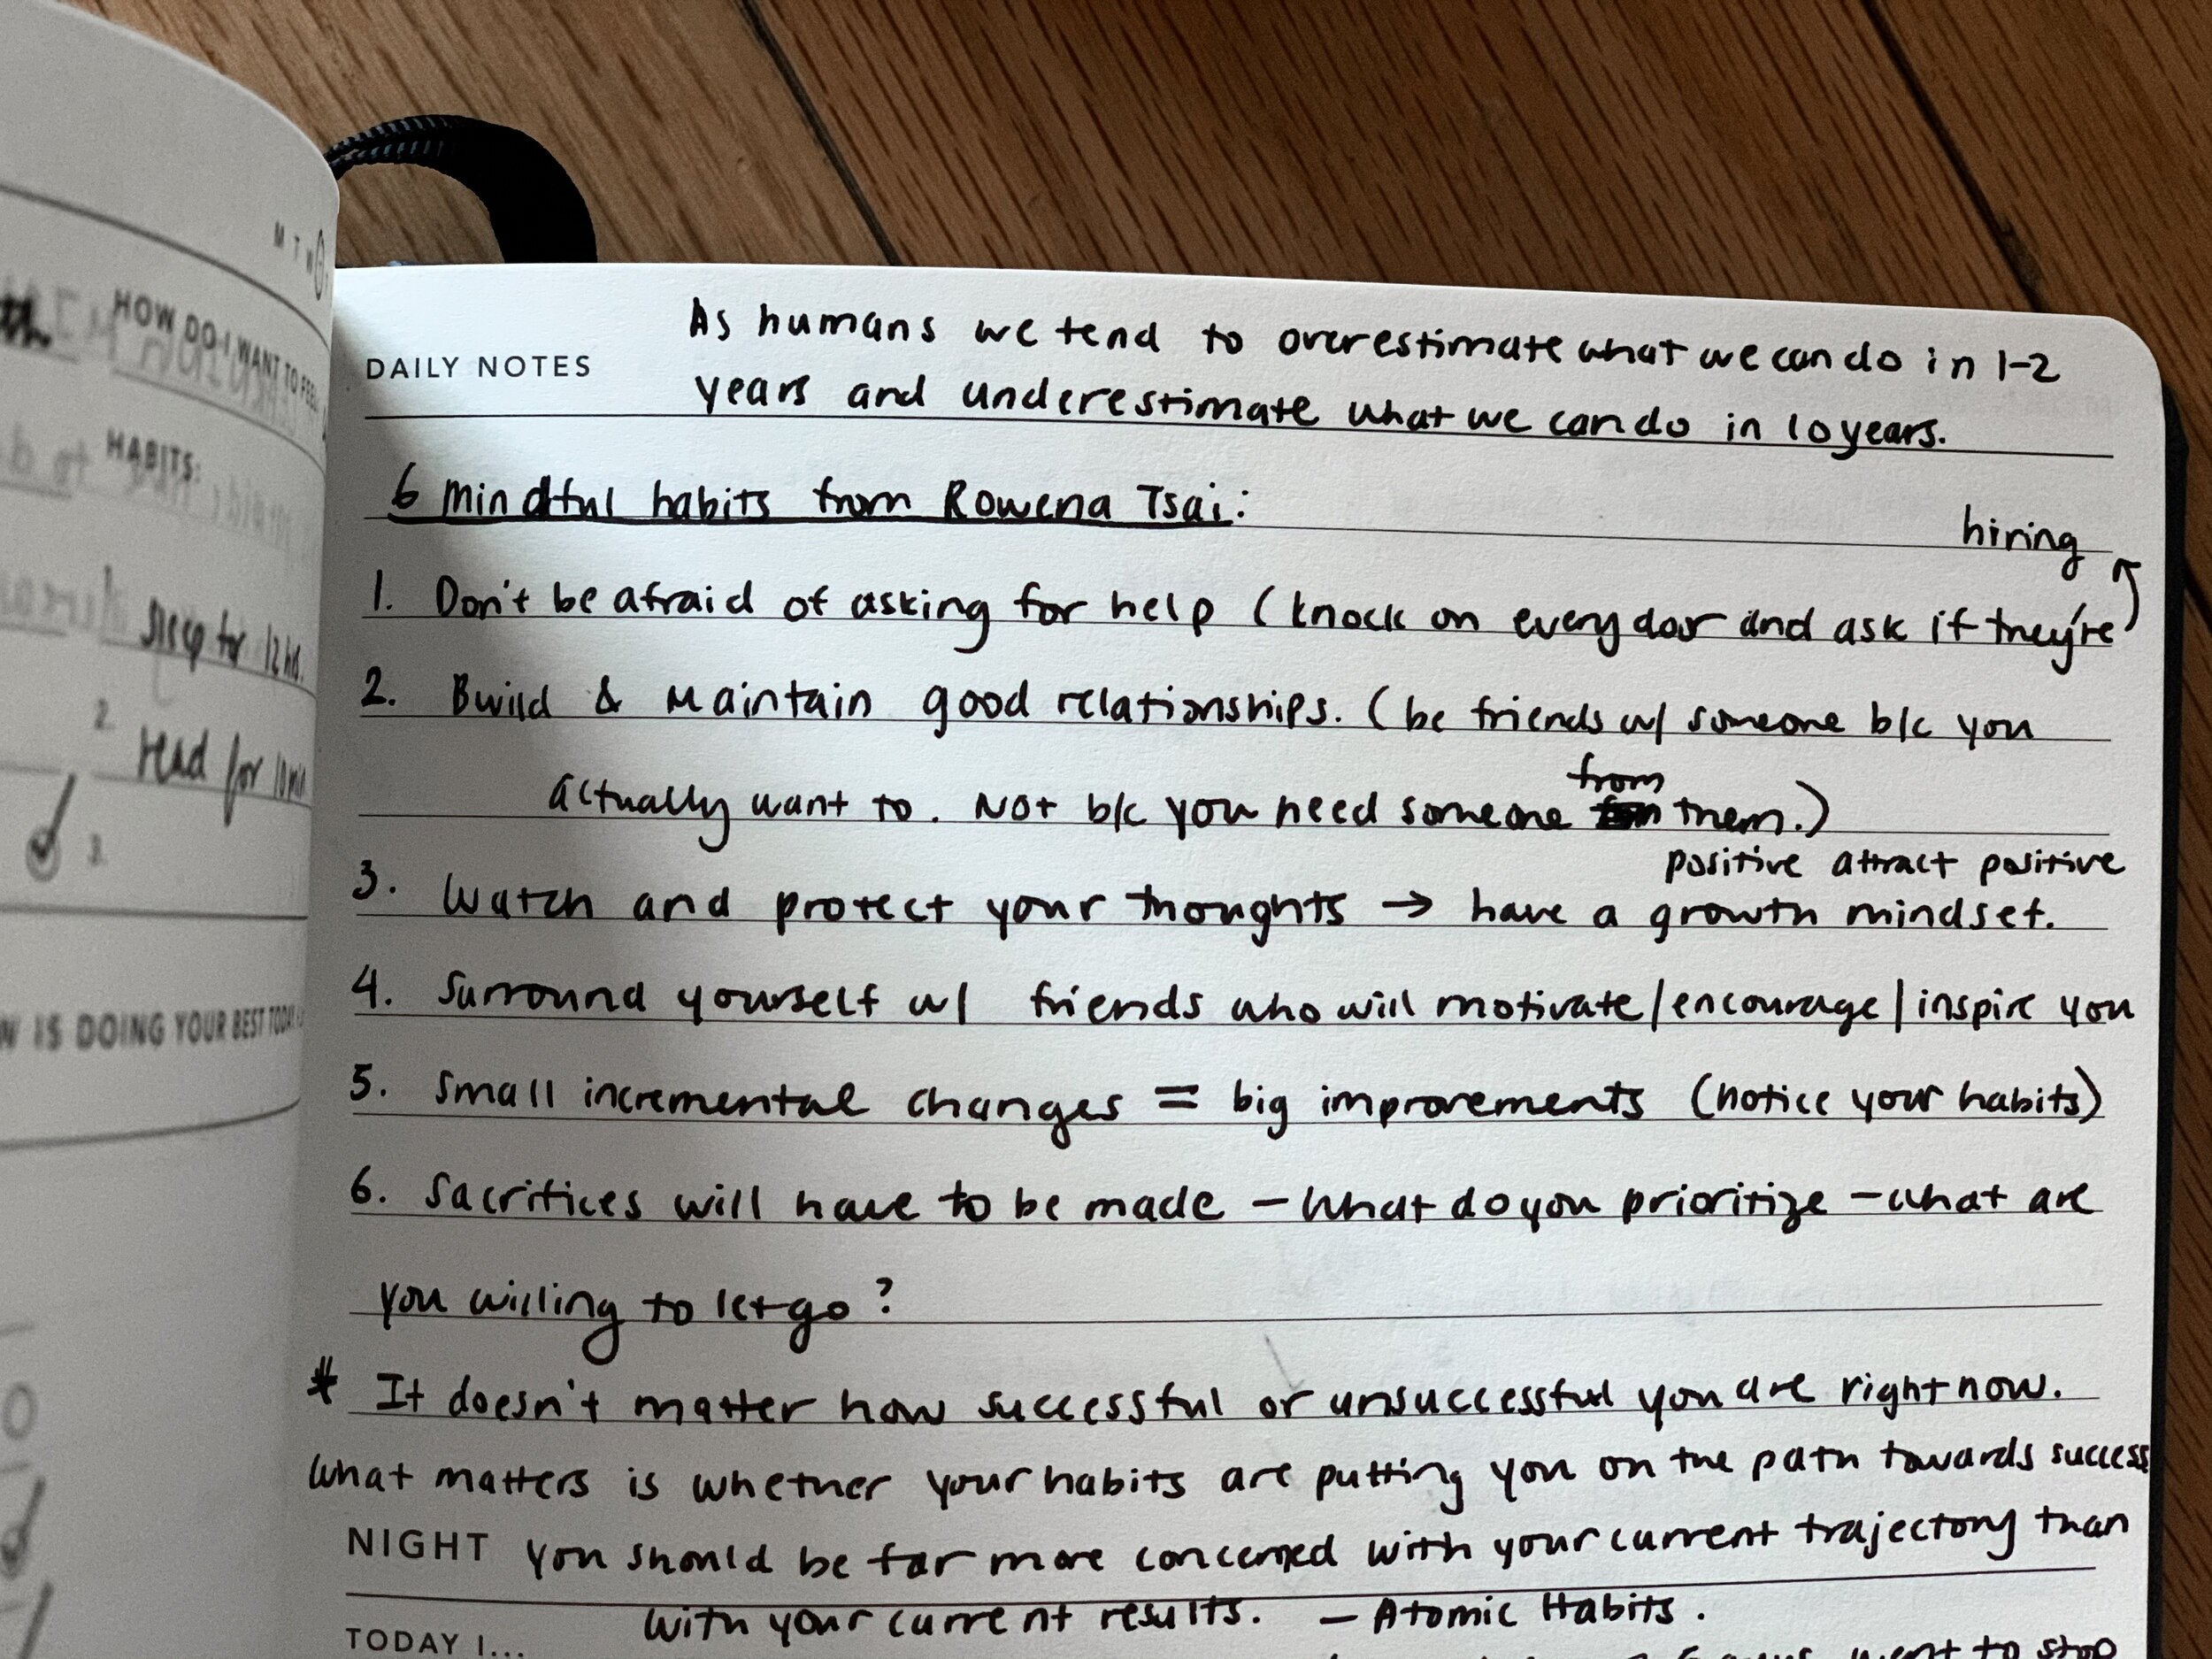 M T W
HOW DO I WANT TO FEEL
HABITS:
sleep for 12 hrs.
2. read for 10 min
3.
IS DOING YOUR BEST TODAY
As humans we tend to overestimate what we can do in 1-2
DAILY NOTES
years and underestimate what we can do in 10 years.
6 mindful habits from Rowena Tsai:
hiring
1. Don't be afraid of asking for help (knock on every door and ask if they're
2. Build & Maintain good relationships. (be friends w/ someone b/c you
from
actually want to. Not b/c you need someone them.)
positive attract positive
3. Watch and protect your thoughts → have a growth mindset.
4. Surround yourself w/ friends who will motivate/encourage/inspire you
5. Small incremental changes = big improvements (notice your habits)
6. Sacrifices will have to be made - What do you prioritize - what are
you willing to let go?
* It doesn't matter how successful or unsuccessful you are right now.
What matters is whether your habits are putting you on the path towards success
NIGHT you should be far more concerned with your current trajectory than
with your current results. - Atomic Habits.
TODAY I...
went to stop